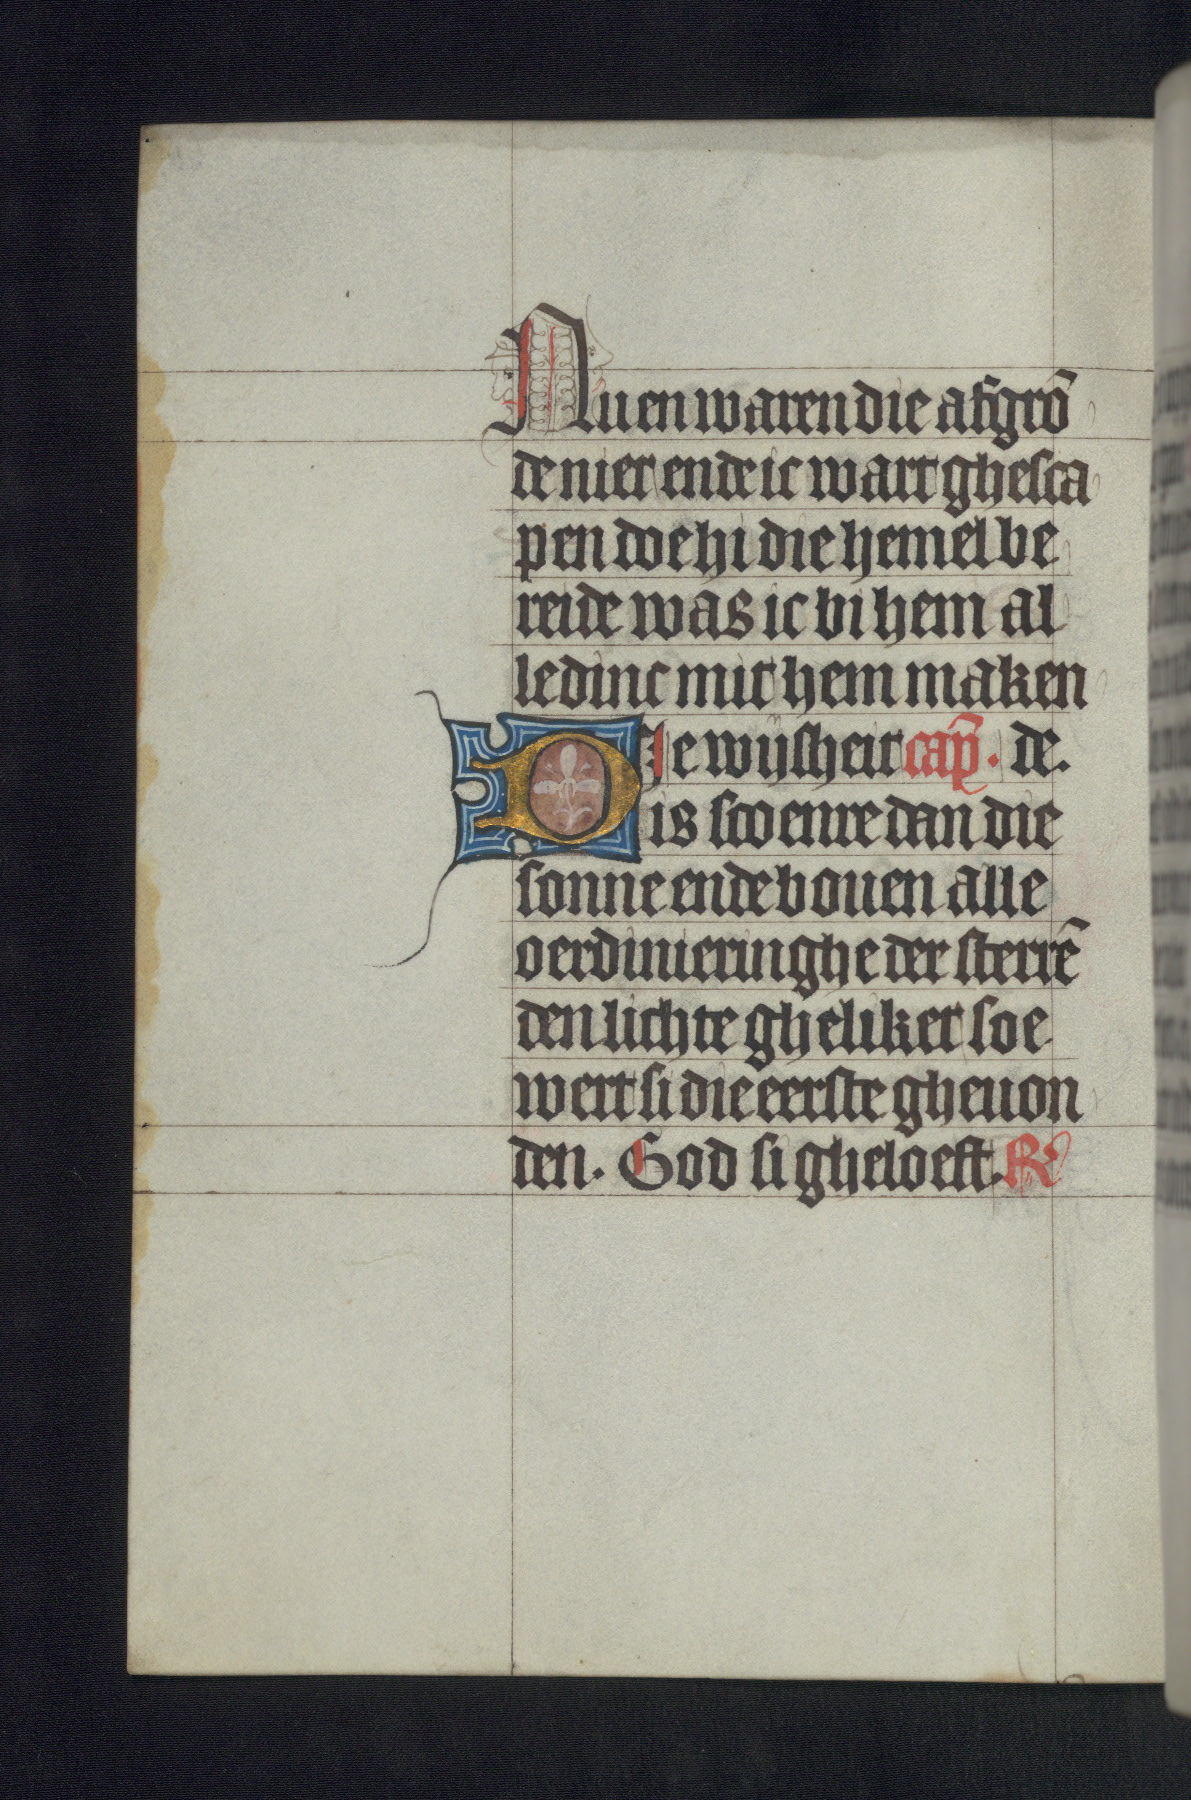 Nu en waren die afgrō
de niet ende ic wart ghesca
pen doe hi die hemel be
reide was ic bi hem al
le dinc mit hem maken
Die wijsheit cap̄. de.
is scoenre dan die
sonne ende bouen alle
oerdinieringhe der sterrē
den lichte gheliket soe
wert si die eerste gheuon
den. God si gheloeft. R